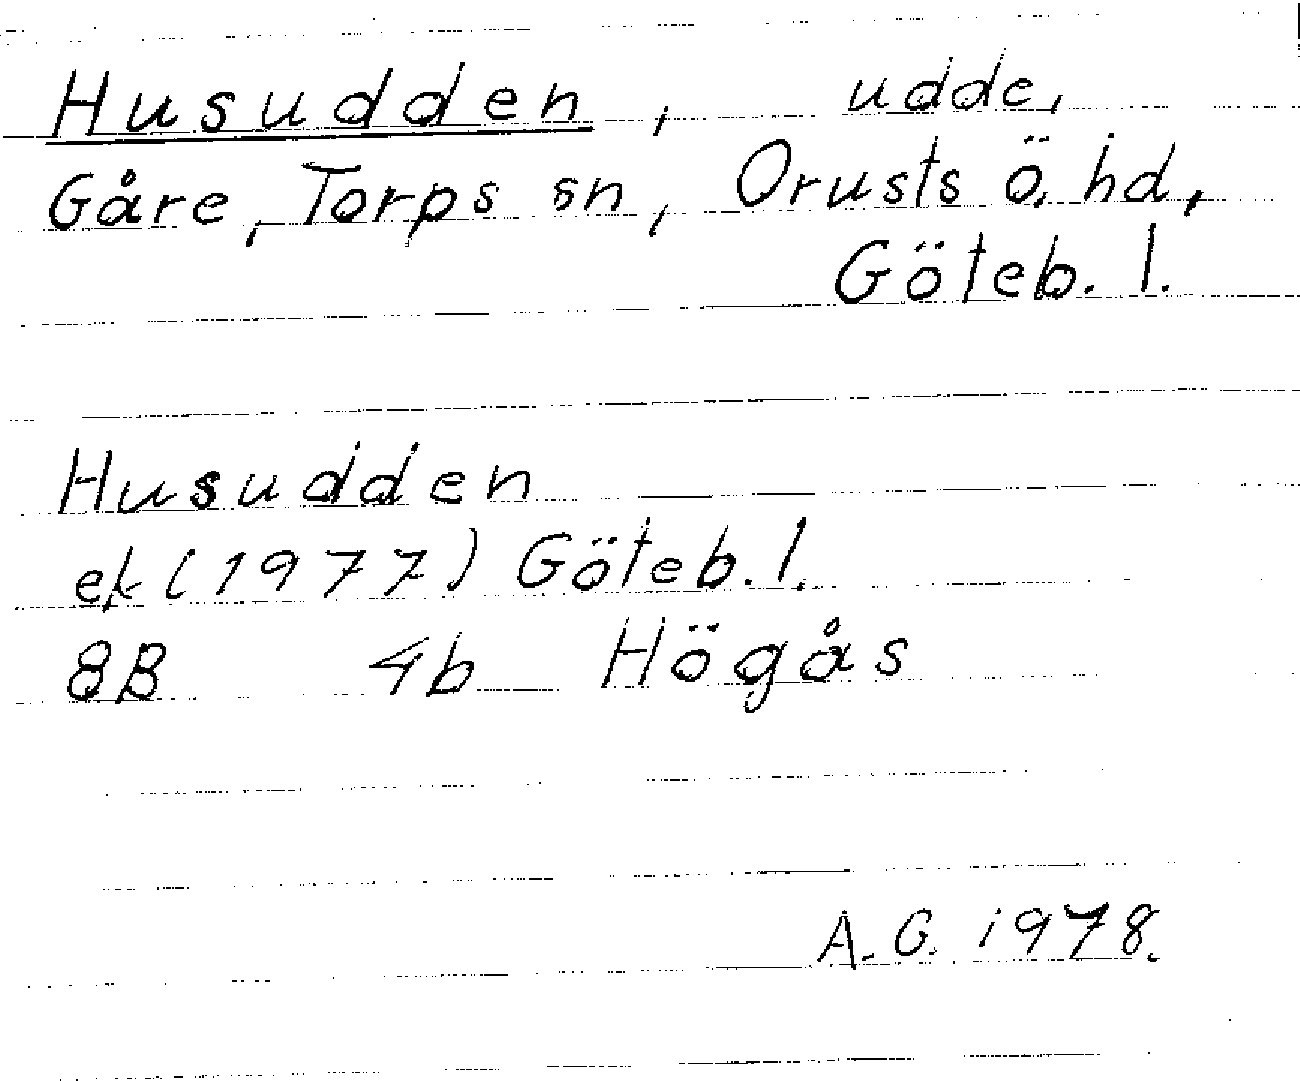 Husudden, udde,
Gåre, Torps sn, Orusts ö. hd,
Göteb. l.
Husudden
ek (1977) Göteb. l.
8B 4b Högås
A. G. 1978.